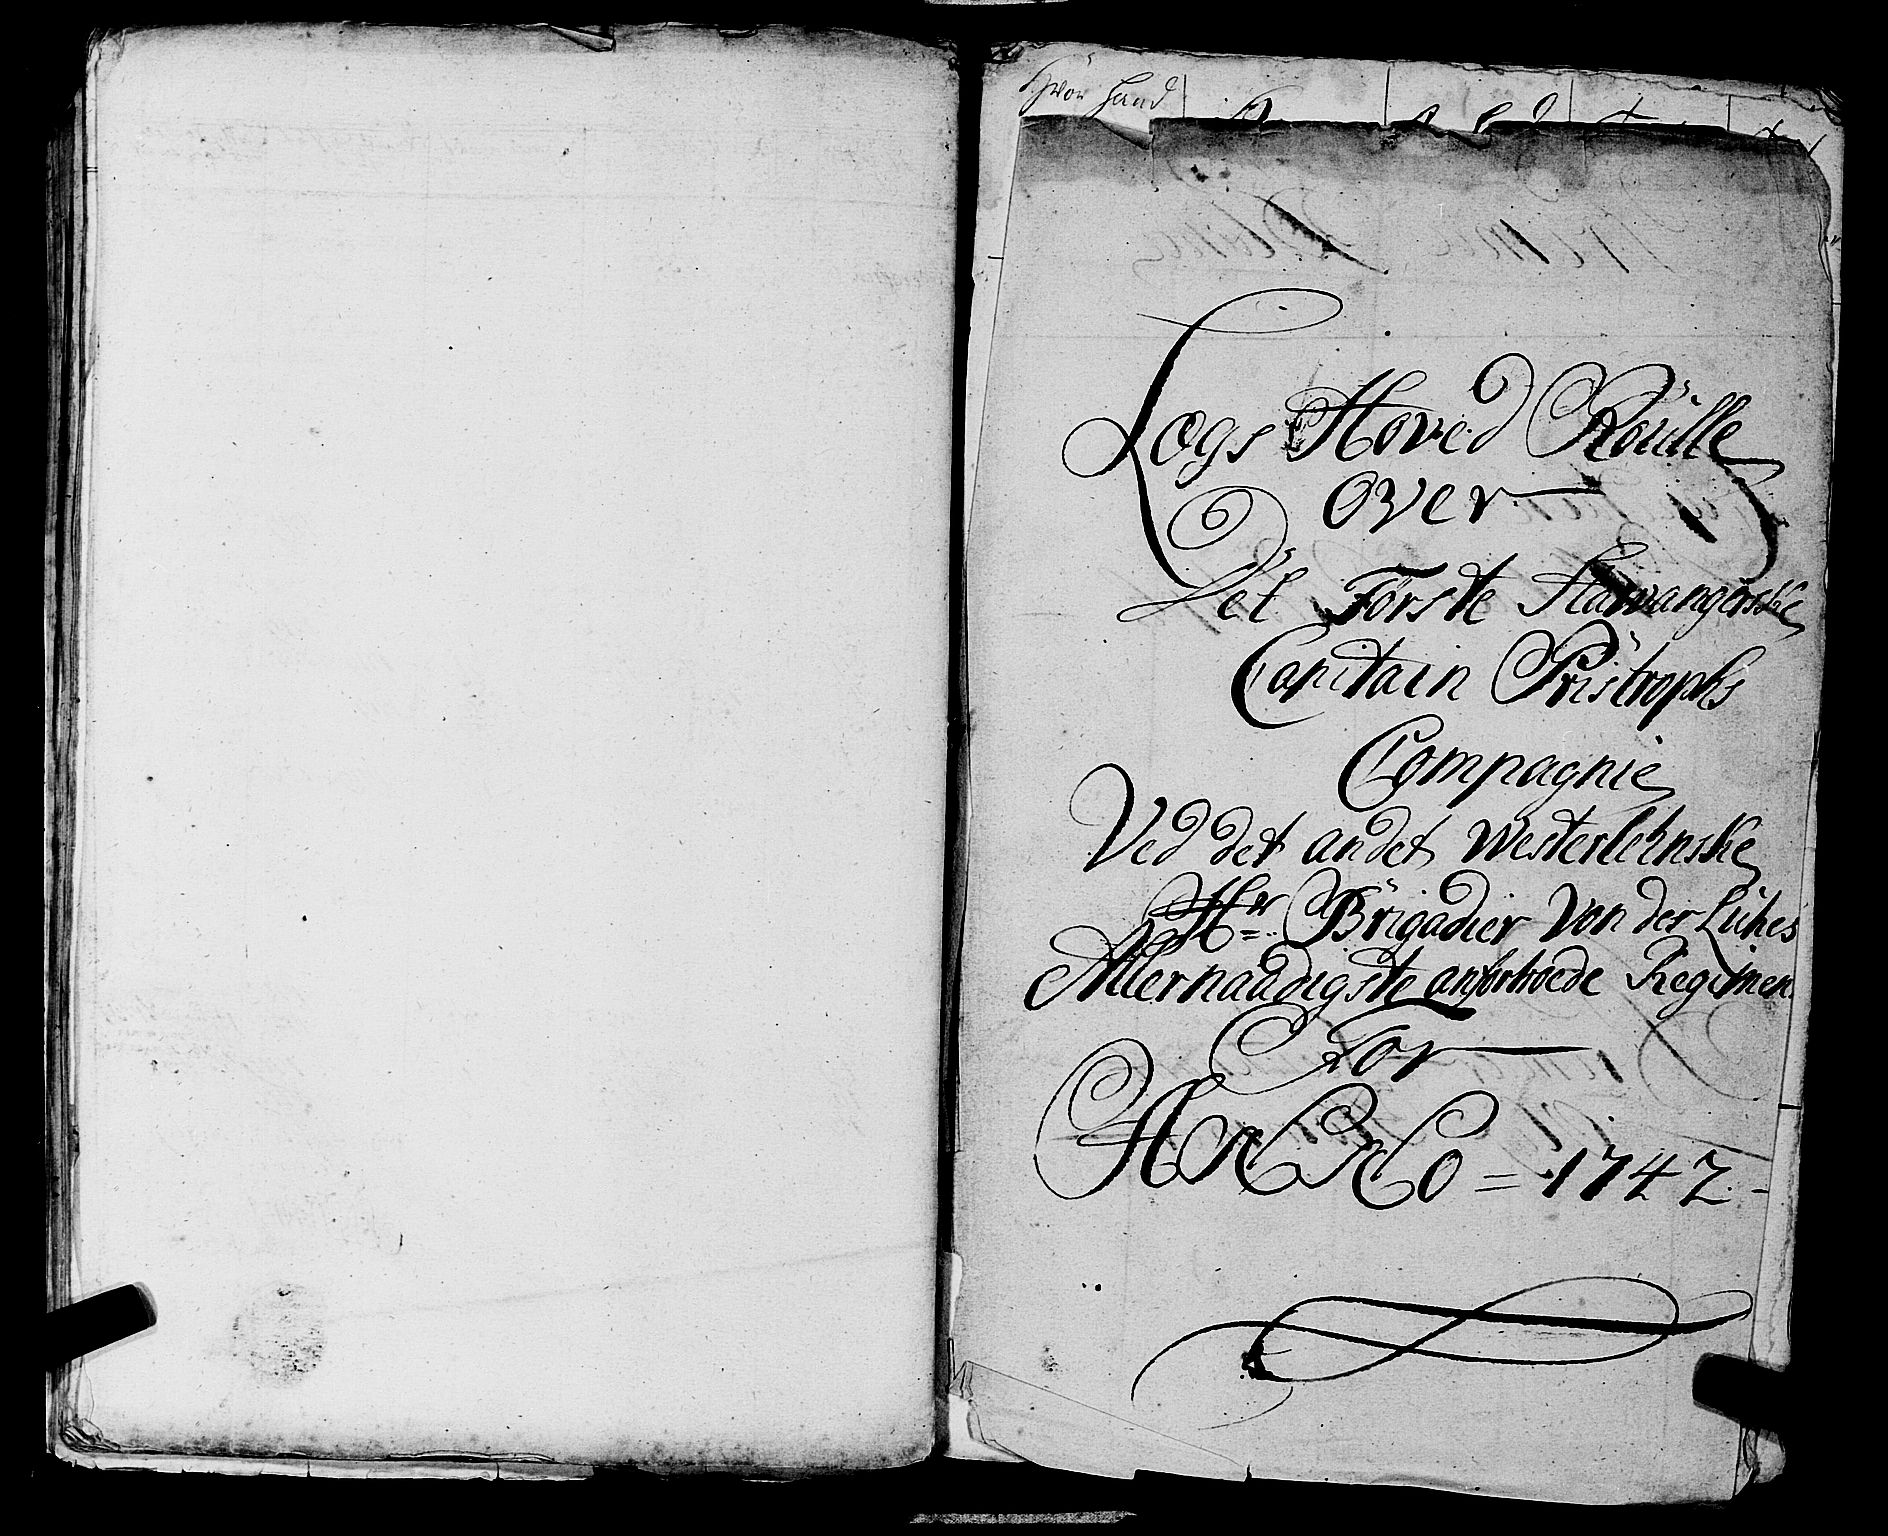 Hvor Haud
Lægs Hoved Roülle
Over
Det Förste Stawangerske
Capitain Pristrophs
Compagnie
Ved det andet Westerlehnske
Hr Brigadier Von der Lühes
Allernaadigste anfortroede Regimen
For
ANNO = 1742.